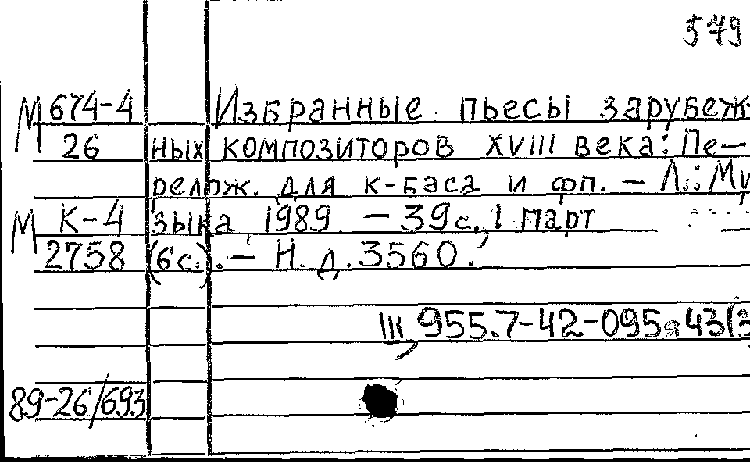 579
М 674-4 Избранные пьесы зарубеж
26 ных композиторов XVIII века: Пе-
релож. для к-баса и фп. - Л.: Му
М К-4 зыка 1989 - 39с., 1 парт
2758 (6с.). - Н. д. 3560.
Щ, 955.7-42-095я43(3
89-26/693